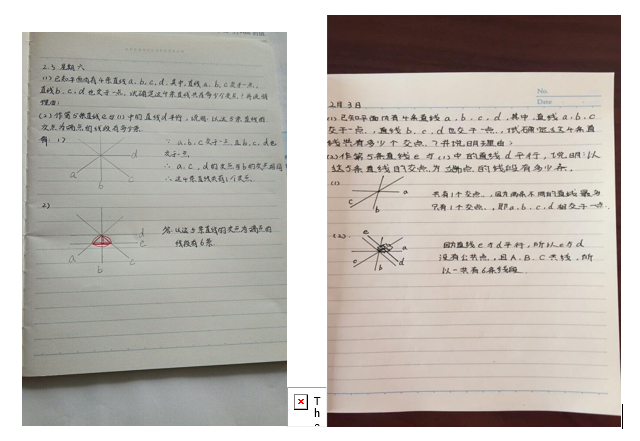 2.3 星期六
(1) 已知平面内有4条直线a、b、c、d,其中,直线a、b、c交于一点,
直线b、c、d也交于一点,试确定这4条直线共有多少个交点?并说明
理由;
(2).作第5条直线e与(1)中的直线d平行,说明:以这5条直线的
交点为端点的线段有多少条.
解:1)
∵ a、b、c 交于一点 且b、c、d也
交于一点
∴ a、c、d的交点与b的交点
∴ 这4条直线共有1个交点.
a
b
c
d
2)
答:以这5条直线的交点为端点的
线段有6条.
a
b
c
d
e
No.
Date
2月3日
(1).已知平面内有4条直线a、b、c、d,其中,直线a、b、c
交于一点,直线b、c、d也交于一点,试确定这4条直
线共有多少个交点?并说明理由;
(2)作第5条直线e与(1)中的直线d平行,说明:以
这5条直线的交点为端点的线段有多少条.
(1)
共有1个交点,因为两条不同的直线最多
只有1个交点,即a、b、c、d相交于一点.
a
b
c
(2).
因为直线e与d平行,所以e与d
没有公共点,且A、B、C共线,所
以一共有6条线段
e
a
d
b
c
T
h